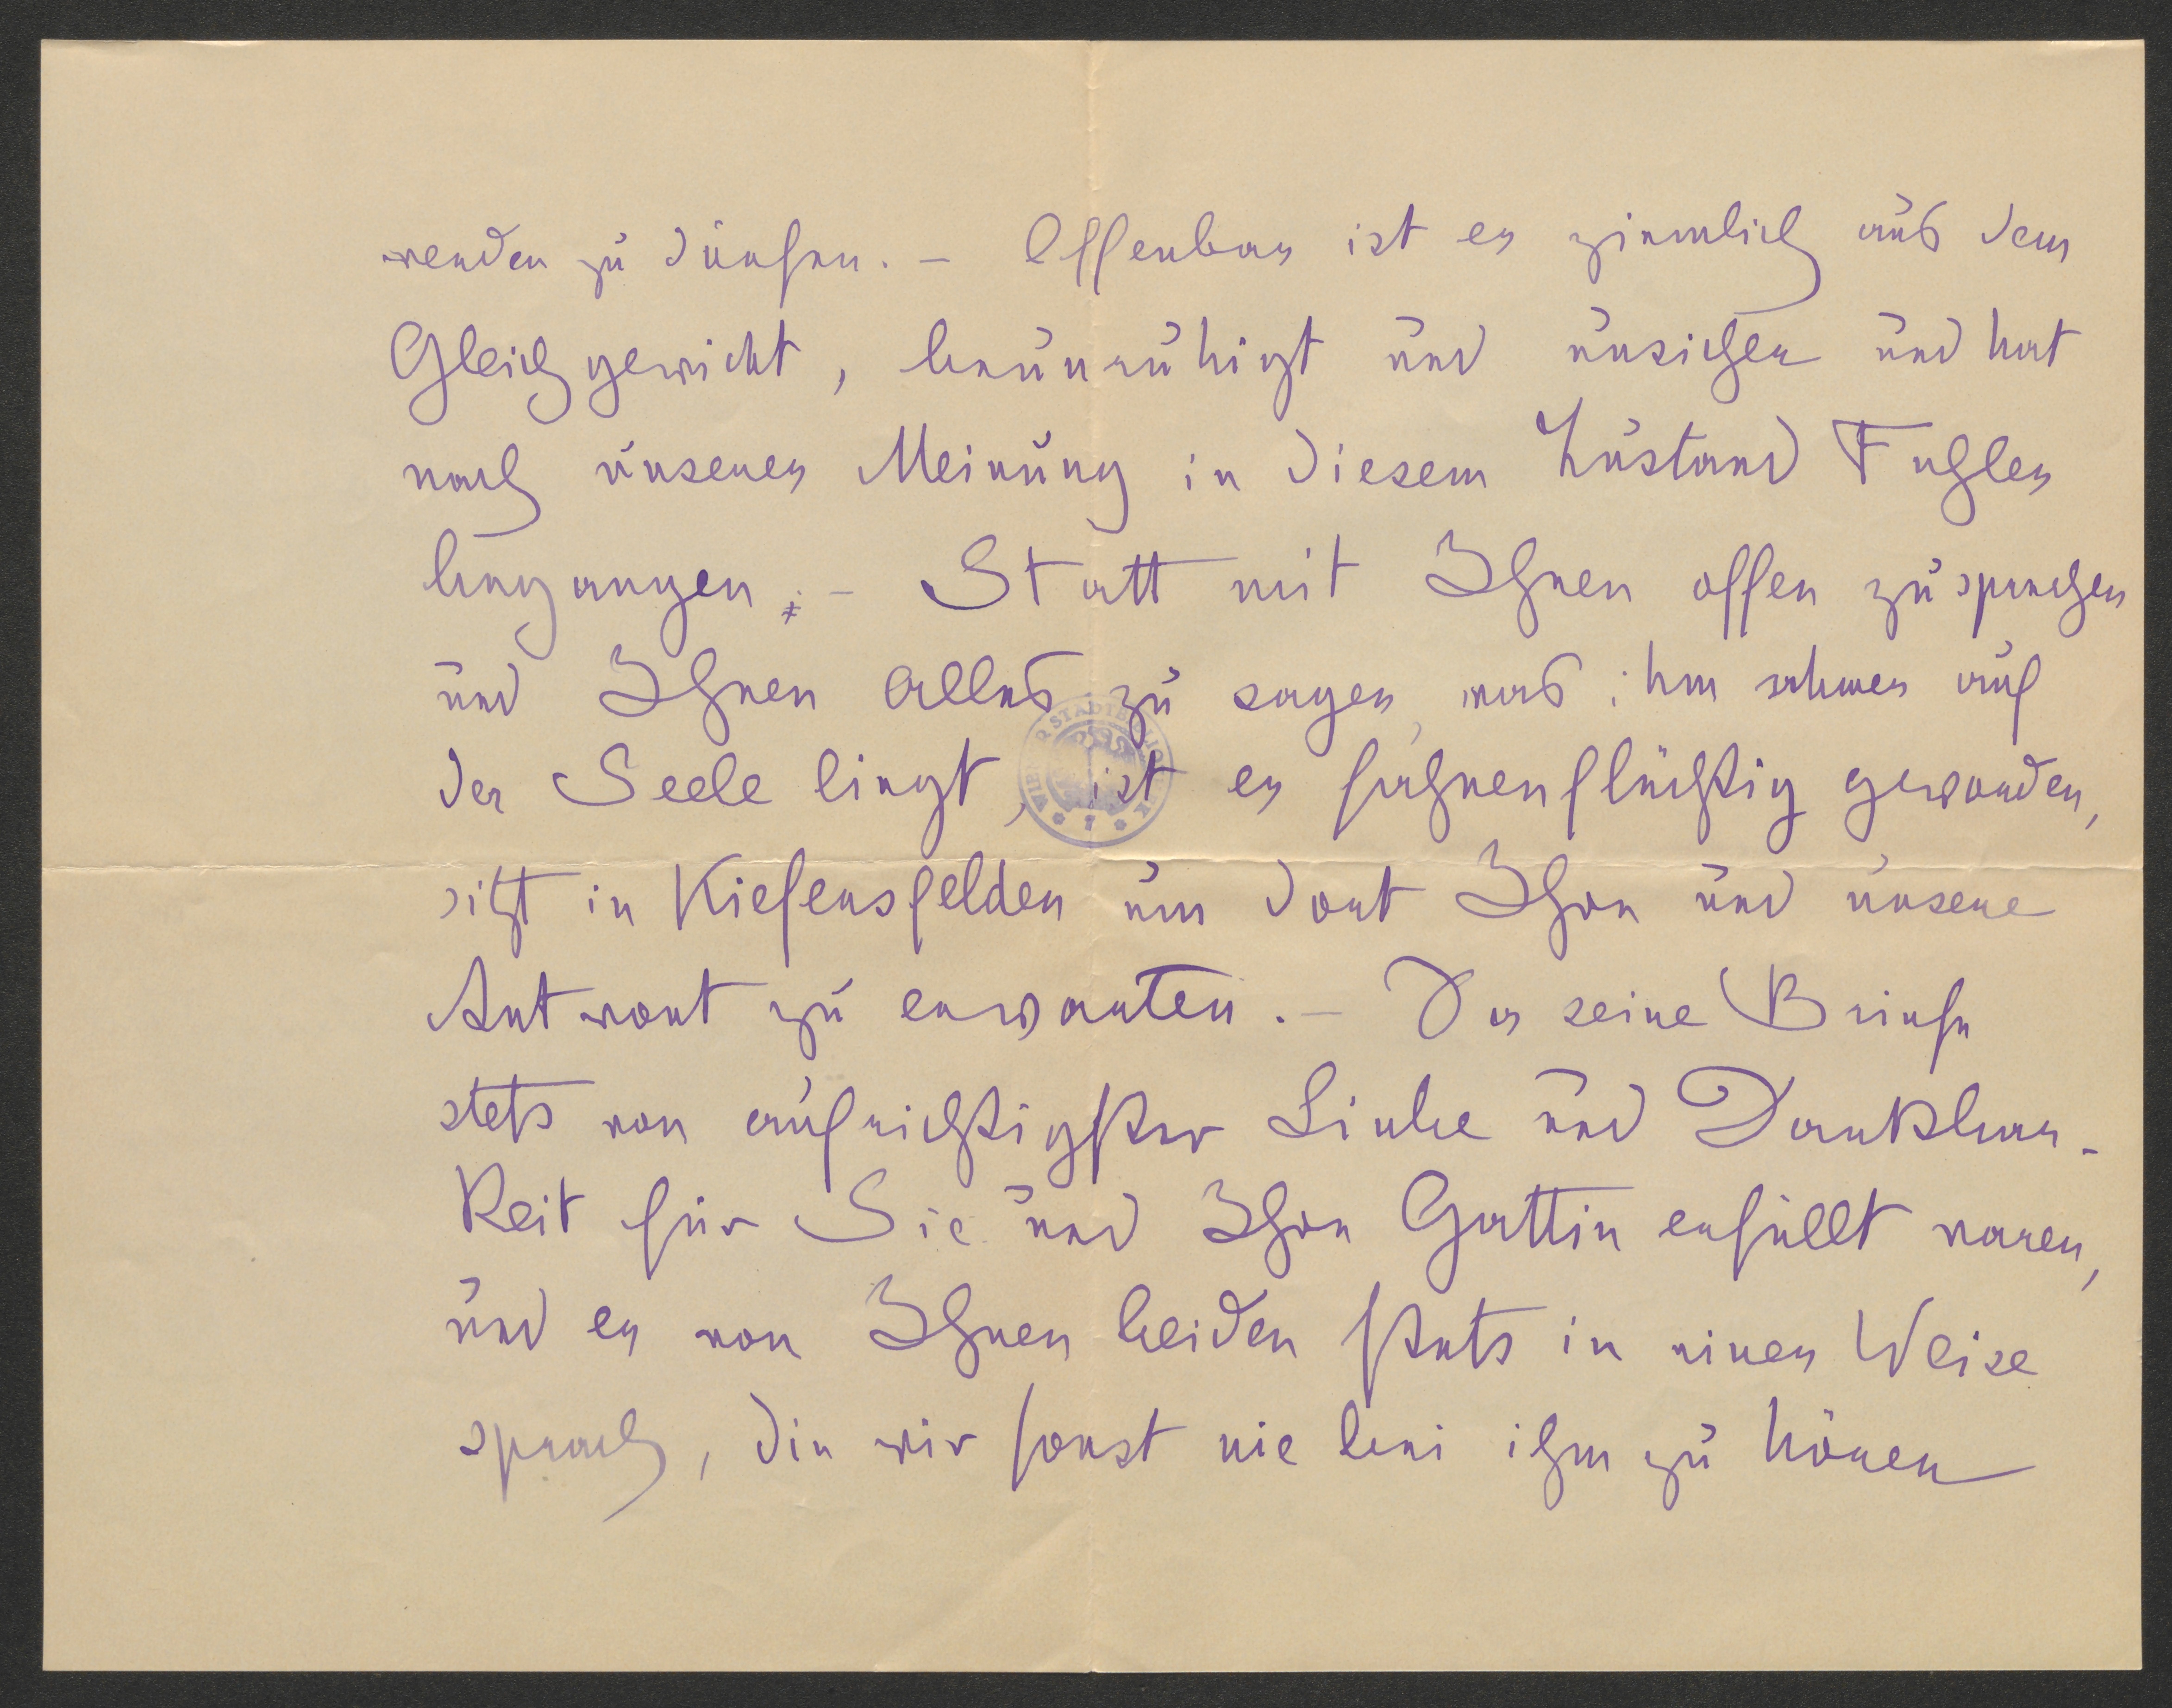 wenden zu dürfen. – Offenbar ist er ziemlich aus dem
Gleichgewicht, beunruhigt und unsicher und hat
nach unserer Meinung in diesem Zustand Fehler
begangen. – Statt mit Ihnen offen zu sprechen
und Ihnen alles zu sagen, was ihm schwer auf
der Seele liegt, ist er fahnenflüchtig geworden,
sitzt in Kiefersfelden um dort Ihre und unsere
Antwort zu erwarten. – Da seine Briefe
stets von aufrichtigster Liebe und Dankbar-
keit für Sie und Ihre Gattin erfüllt waren,
und er von Ihnen beiden stets in einer Weise
sprach, die wir sonst nie bei ihm zu hören